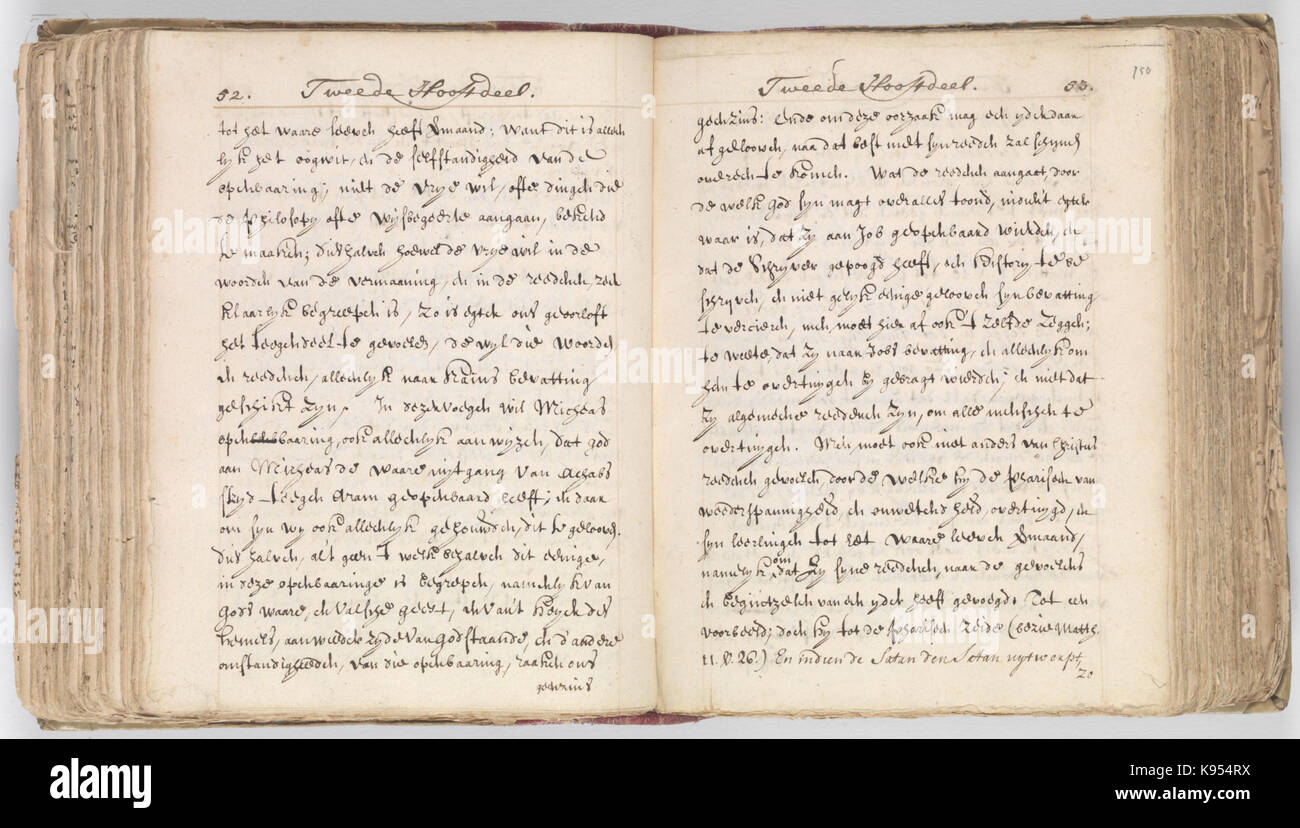 52. Tweede Hooftdeel.
tot het waare leeven heeft vermaand; want dit is alleen
lyk het oogwit, en de selfstandigheid van de
openbaaring; niet de vrye wil, ofte dingen die
de Philosophy ofte Wysbegeerte aangaan, bekend
te maaken; dieshalven hoewel de vrye wil in de
woorden van de vermaaning, en in de reedenen, zeer
klaarlyk begreepen is, zo is egter ons geoorloft
het teegendeel te gevoelen, dewyl die woorden
en reedenen, alleenlyk naar Kains bevatting
geschikt zyn. In dezervoegen wil Micheas
openbaaring, ook alleenlyk aanwyzen, dat god
aan Micheas de waare uytgang van Achabs
stryd teegen Aram geopenbaard heeft; en daar
om syn wy ook alleenlyk gehouden, dit te gelooven.
Dies halven, al 't geen 't welk behalven dit eenige,
in deze openbaaringe is begrepen, namenlyk van
Gods waare, en valsche geest, en van 't heyr des
hemels, aan weeder zyde van God staande, en d'andere
omstandigheeden, van die openbaaring, raaken ons
geenzins
Tweede Hooftdeel. 53.
150
geenzins: Ende om deze oorzaak mag een yder daar
af gelooven, naa dat best met syn reeden zal schynen
overeen te komen. Wat de reedenen aangaat, door
de welk God syn magt over alles toond, indien 't egter
waar is, dat zy aan Job geopenbaard wierden, en
dat de Schryver gepoogd heeft, een history te be
schryven, en niet gelyk eenige gelooven syn bevatting
te vercieren, men moet hier af ook 't zelfde zeggen;
te weete, dat zy naar Jobs bevatting, en alleenlyk om
hem te overtuygen by gebragt wierden; en niet dat
zy algemeene reedenen zyn, om alle menschen te
overtuygen. Men moet ook niet anders van Christus
reedenen gevoelen, door de welke hy de Phariseen van
weederspannigheid, en onwetendheid, overtuygd, en
syn leerlingen tot het waare leeven vermaand,
namelyk, om dat hy syne reedenen, naar de gevoelens
en beginzelen van een yder heeft gevoegd. Tot een
voorbeeld; doen hy tot de Phariseen zeide (bezie Matth.
12. v. 26.) En indien de Satan den Satan uytworpt,
zo
alamy
a
alamy
K954RX
www.alamy.com